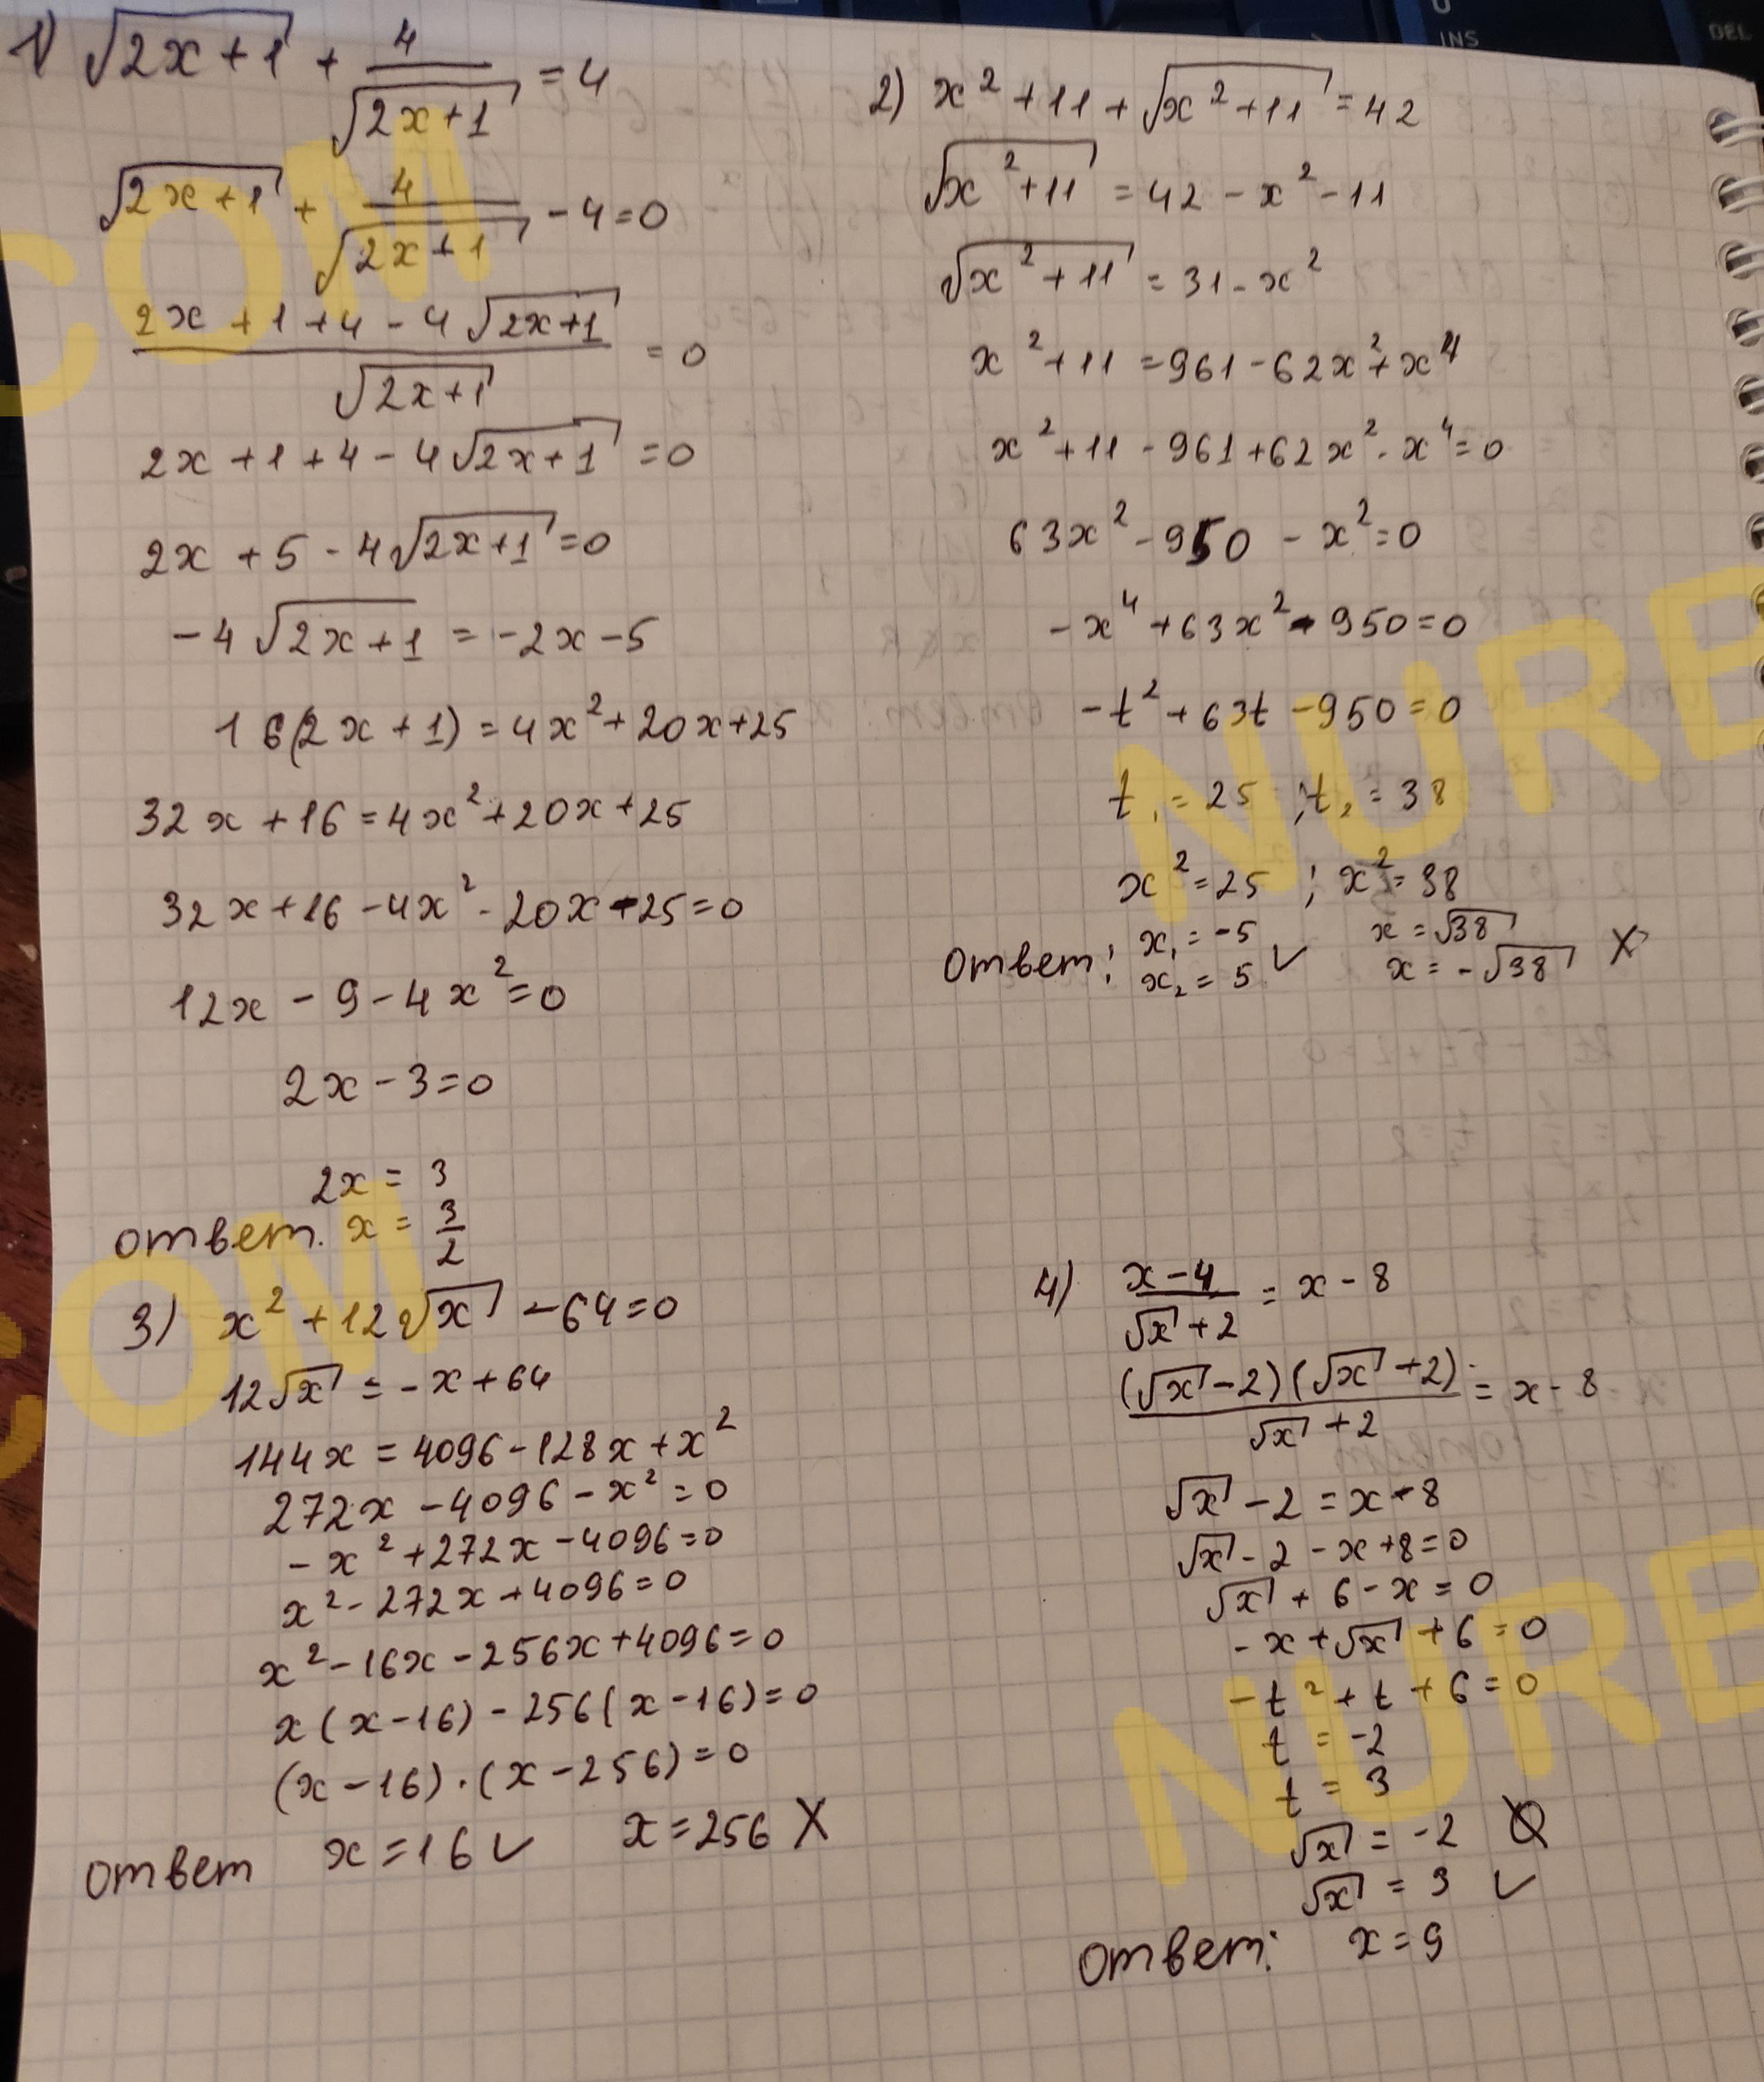 1) √2x+1 + 4/√2x+1 = 4
√2x+1 + 4/√2x+1 - 4 = 0
2x+1+4-4√2x+1 / √2x+1 = 0
2x+1+4-4√2x+1 = 0
2x+5-4√2x+1 = 0
-4√2x+1 = -2x-5
16(2x+1) = 4x²+20x+25
32x+16 = 4x²+20x+25
32x+16-4x²-20x-25=0
12x-9-4x²=0
2x-3=0
2x = 3
ответ. x = 3/2
2) x²+11+√x²+11 = 42
√x²+11 = 42-x²-11
√x²+11 = 31-x²
x²+11 = 961-62x²+x⁴
x²+11-961+62x²-x⁴=0
63x²-950-x²=0
-x⁴+63x²-950=0
-t²+63t-950=0
t₁=25 ; t₂=38
x²=25 ; x²=38
x₁=-5 x=√38
ответ: x₂=5 ✓ x=-√38 X
3) x²+12√x-64=0
12√x = -x+64
144x = 4096-128x+x²
272x-4096-x²=0
-x²+272x-4096=0
x²-272x+4096=0
x²-16x-256x+4096=0
x(x-16)-256(x-16)=0
(x-16)·(x-256)=0
ответ x=16 ✓ x=256 X
4) x-4/√x+2 = x-8
(√x-2)(√x+2)/√x+2 = x-8
√x-2 = x-8
√x-2-x+8=0
√x+6-x=0
-x+√x+6=0
-t²+t+6=0
t=-2
t=3
√x=-2 X
√x=3 ✓
ответ: x=9
COM
NURE
COM
NURE
INS
DEL